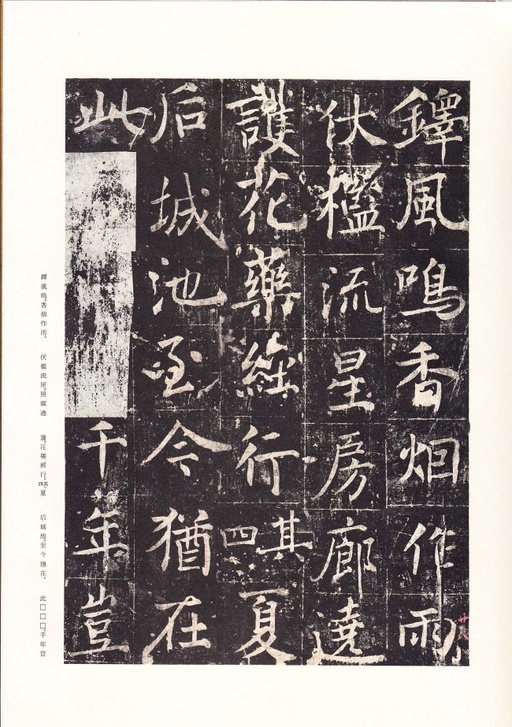 鐸風鳴香烟作雨
伏檻流星房廊遶
護花藥經行其四夏
后城池至今猶在
此千年豈
鐸風鳴。香烟作雨。 伏檻流星。房廊遶 護花藥經行。其四。夏 后城池。至今猶在。 此□□□□千年豈